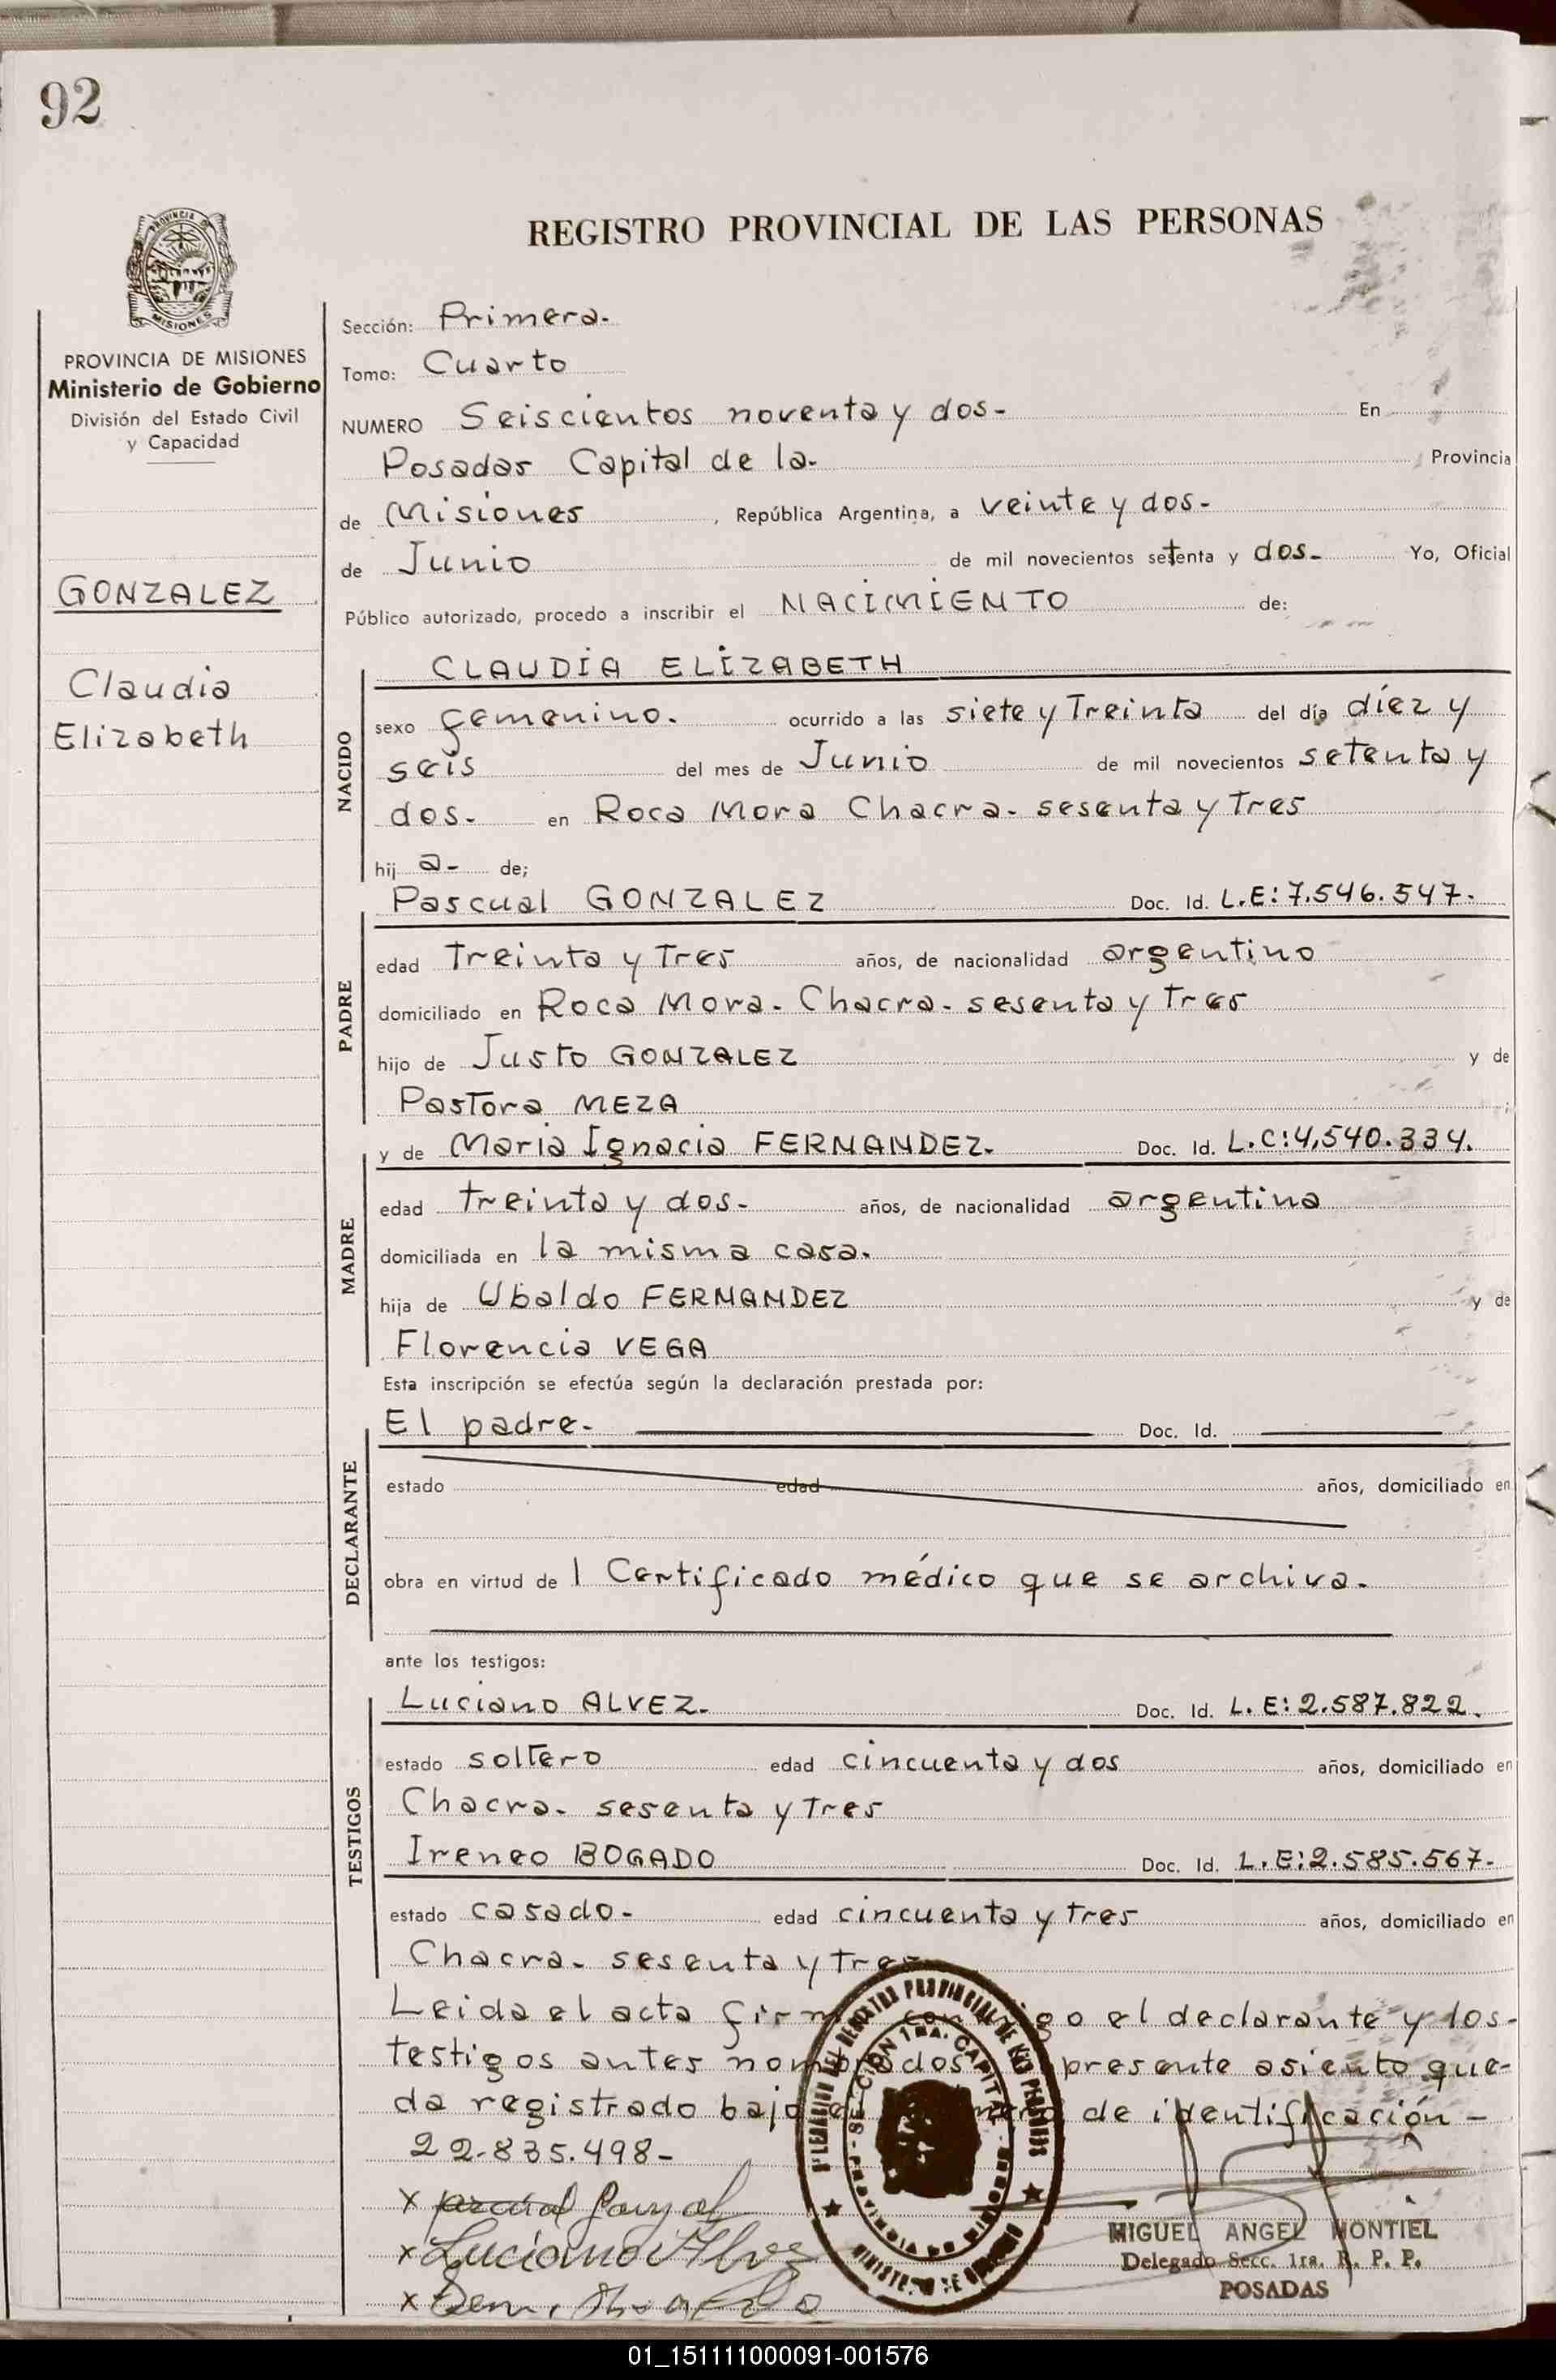 92
PROVINCIA DE
MISIONES
PROVINCIA DE MISIONES
Ministerio de Gobierno
División del Estado Civil
y Capacidad
GONZALEZ
Claudia
Elizabeth
REGISTRO PROVINCIAL DE LAS PERSONAS
Sección: Primera.
Tomo: Cuarto
NUMERO Seiscientos noventa y dos- En
Posadas Capital de la- Provincia
de Misiones, República Argentina, a veinte y dos-
de Junio de mil novecientos setenta y dos- Yo, Oficial
Público autorizado, procedo a inscribir el NACIMIENTO de:
CLAUDIA ELIZABETH
NACIDO
sexo femenino. ocurrido a las siete y Treinta del día díez y
seis del mes de Junio de mil novecientos setenta y
dos- en Roca Mora Chacra- sesenta y Tres
hij a- de;
Pascual GONZALEZ Doc. Id. L.E:7.546.547.
PADRE
edad Treinta y Tres años, de nacionalidad argentino
domiciliado en Roca Mora- Chacra- sesenta y Tres
hijo de Justo GONZALEZ y de
Pastora MEZA
y de Maria Ignacia FERNANDEZ. Doc. Id. L.C:4,540.334.
MADRE
edad Treinta y dos- años, de nacionalidad argentina
domiciliada en la misma casa.
hija de Ubaldo FERNANDEZ y de
Florencia VEGA
Esta inscripción se efectúa según la declaración prestada por:
El padre- Doc. Id.
DECLARANTE
estado edad años, domiciliado en
obra en virtud de l Certificado médico que se archiva-
ante los testigos:
Luciano ALVEZ- Doc. Id. L.E:2.587.822.
TESTIGOS
estado soltero edad cincuenta y dos años, domiciliado en
Chacra- sesenta y Tres
Ireneo BOGADO Doc. Id. L.E:2.585.567-
estado casado- edad cincuenta y tres años, domiciliado en
Chacra- sesenta y Tres
Leida el acta firman conmigo el declarante y los-
testigos antes nombrados presente asiento que-
da registrado bajo el número de identificación-
22-835.498-
x
x Luciano Alvez
x
SECCION 1RA. CAPITAL
MIGUEL ANGEL MONTIEL
Delegado Secc. 1ra. R. P. P.
POSADAS
01_151111000091-001576